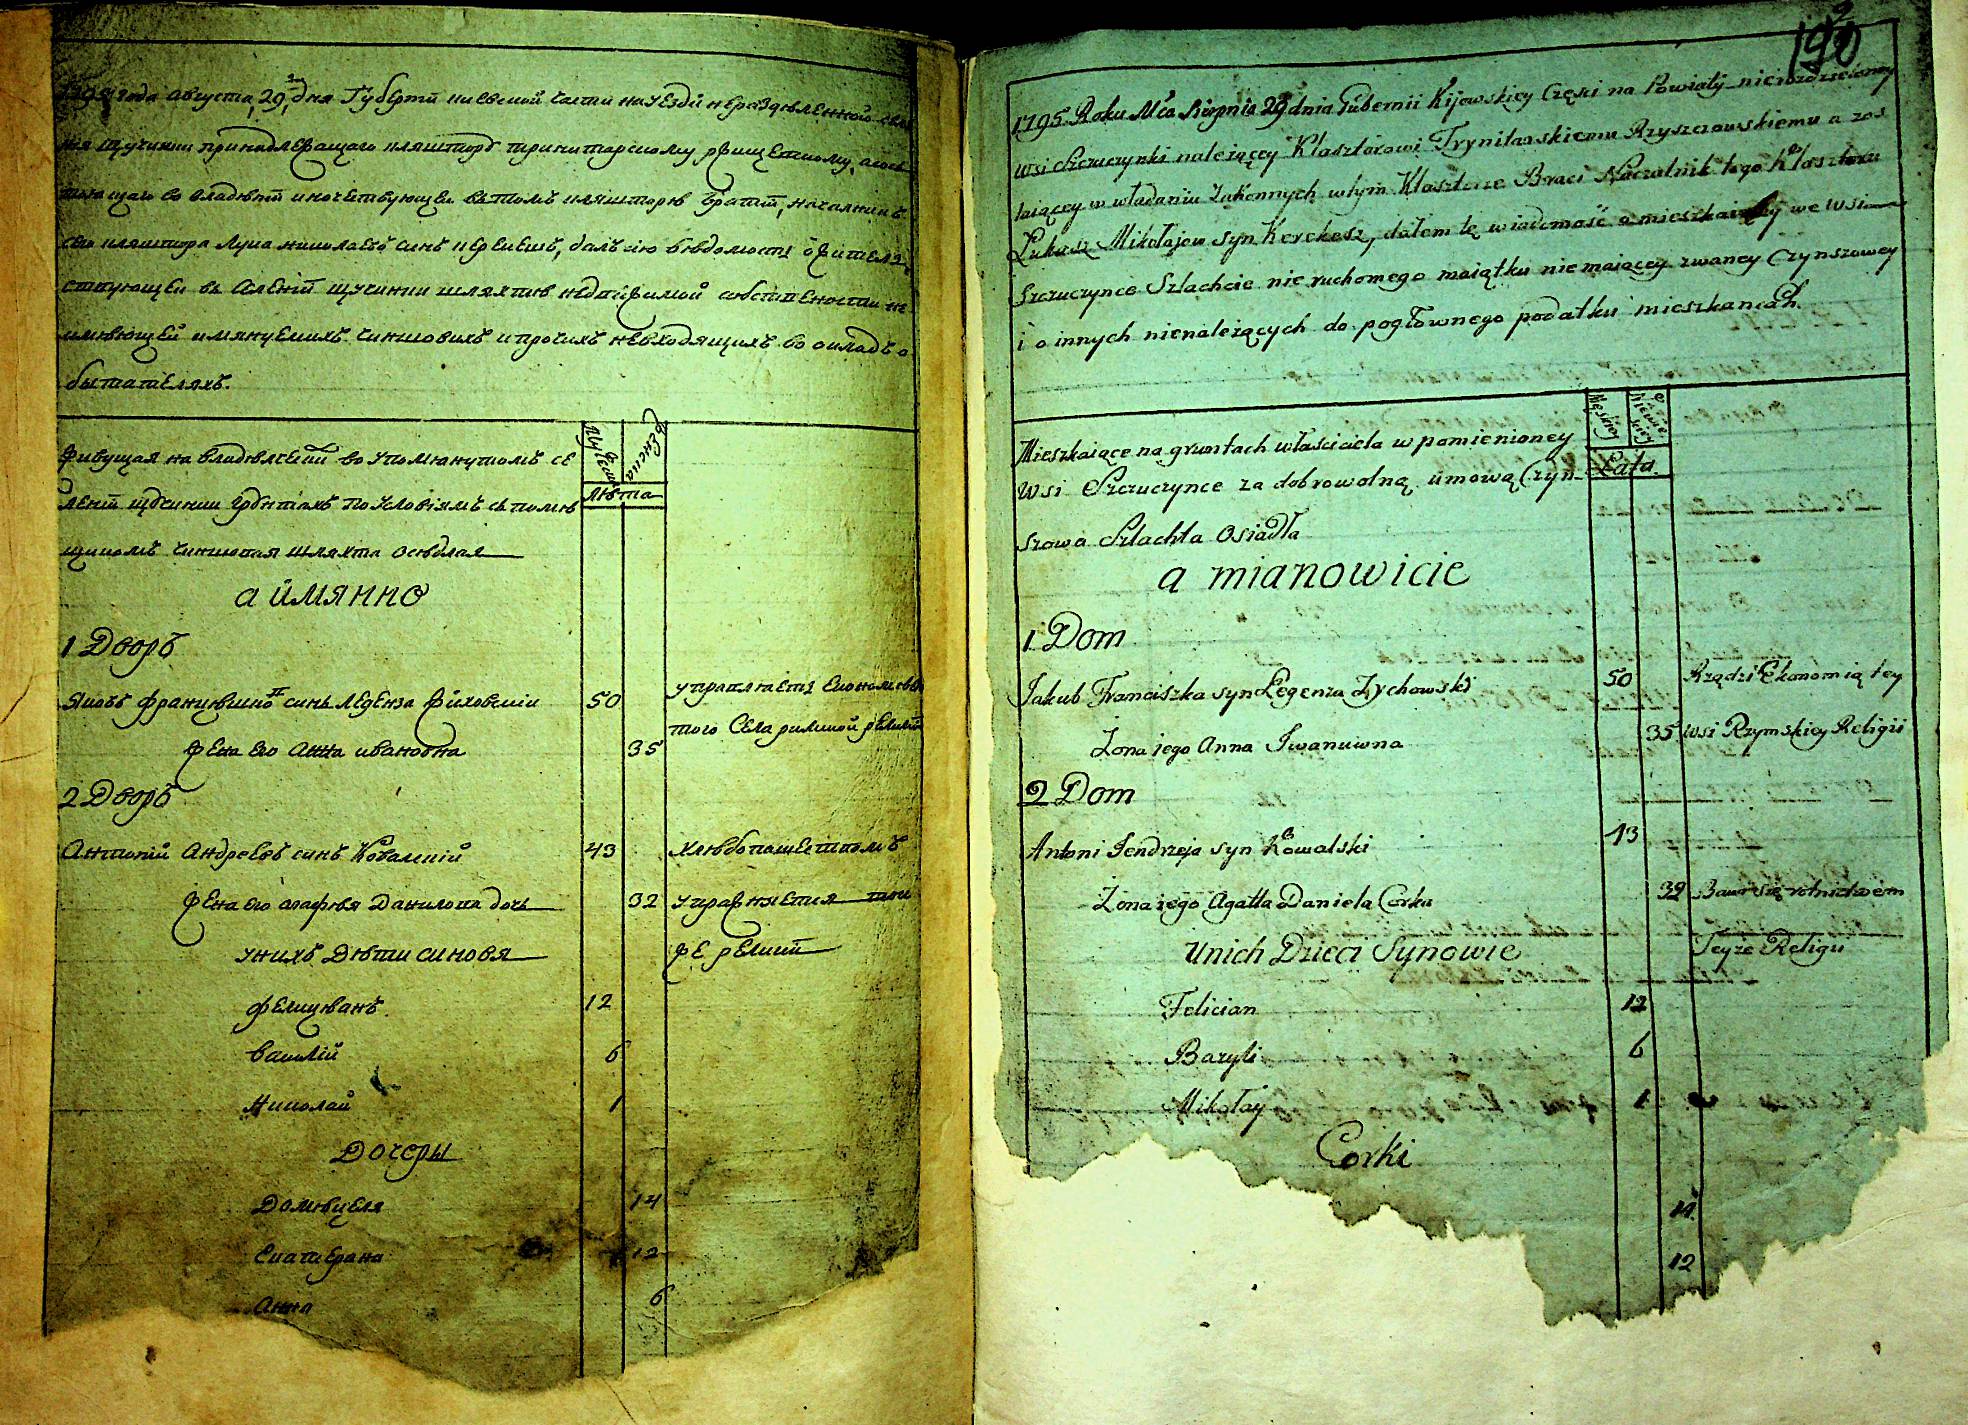 1795 года августа 29 дня Губернїи киевской части на уезди нераздѣленной селе
нїя щучинки принадлежащаго кляштору тринитарскому ржищевскому, а сос
тоящаго во владѣнїи иночествующей въ томъ кляшторѣ братїи, началникъ
сего кляштора Лука николаевъ синъ керекешъ, далъ сію вѣдомость о жителѣ
ствующей въ селенїи щучинки шляхтѣ недвижимой собствености не
имѣющей имянуемихъ чиншовихъ и прочихъ невходящихъ во окладъ о
бытателяхъ.
Живущая на владѣлческой во упомянутомъ се
ленїи щучинки грунтахъ по условіямъ съ помѣ
щикомъ чиншовая шляхта осѣдлая
Мужеска
Женска
лѣта
а иМЯННО
1 Дворъ
Яковъ францѣшковъ синъ Легенза Жиховскій
50
управляетъ економїею
того Села римской релииїи
жена его Анна ивановна
35
2 Дворъ
Антоній Андреевъ синъ Ковалскій
43
хлѣбопашествомъ
жена его агафия Данилова дочь
32
упражняется той
же релиїи
у нихъ Дѣти синовя
фелицѣянъ
12
василій
6
Николай
1
Дочеры
Домѣцеля
14
Екатерина
12
Анна
6
190
2
1795 Roku Mca Sierpnia 29 dnia Gubernii Kijowskiey Części na Powiaty nierozdzieloney
wsi Szczuczynki należący Klasztorowi Trynitarskiemu Rzyszczowskiemu a zos
taiący w władaniu Zakonnych w tym Klasztorze Braci Naczelnik tego Klasztoru
Łukasz Mikołajow syn Kerekesz, dałem tę wiadomość o mieszkaiący we wsi
Szczuczynce Szlachcie nieruchomego maiątku niemaiącey zwaney Czynszowey
i o innych nienależących do pogłownego podatku mieszkancach
Mieszkaiące na gruntach właściciela w pomienioney
Wsi Szczuczynce za dobrowolną umową Czyn-
szowa Szlachta Osiadła
Męskiey
Niewieściey
Lata
a mianowicie
1 Dom
Jakub Franciszka syn Legenza Zychowski
50
Rządzi Ekonomią tey
Zona iego Anna Iwanuwna
35
wsi Rzymskiey Religii
2 Dom
Antoni Jendrzeja syn Kowalski
43
Zona iego Agatta Daniela Corka
32
Bawi się rolnictwem
Teyze Religii
Unich Dzieci Synowie
Felician
12
Bazyli
6
Mikołay
1
Corki
14
12